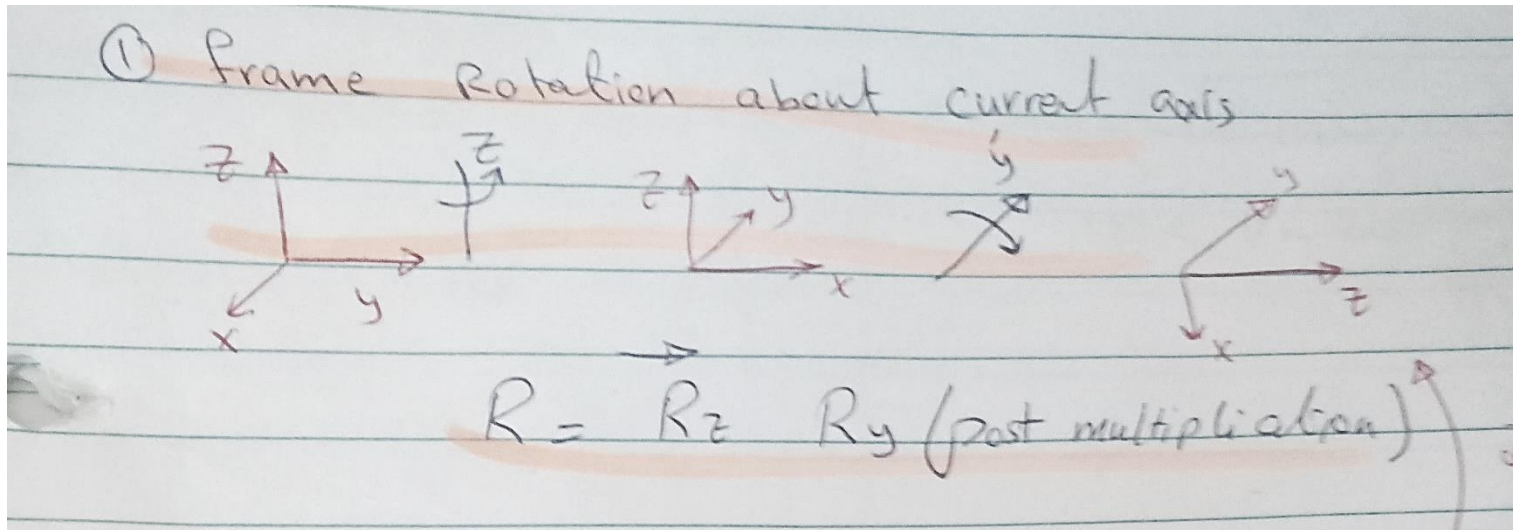 ① frame Rotation about current axis
z z z y ý y
y x z
x x
R = Rz Ry (post multipliation)